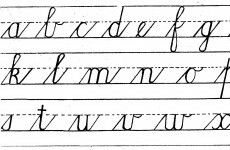 a b c d e f g
k l m n o p
s t u v w x